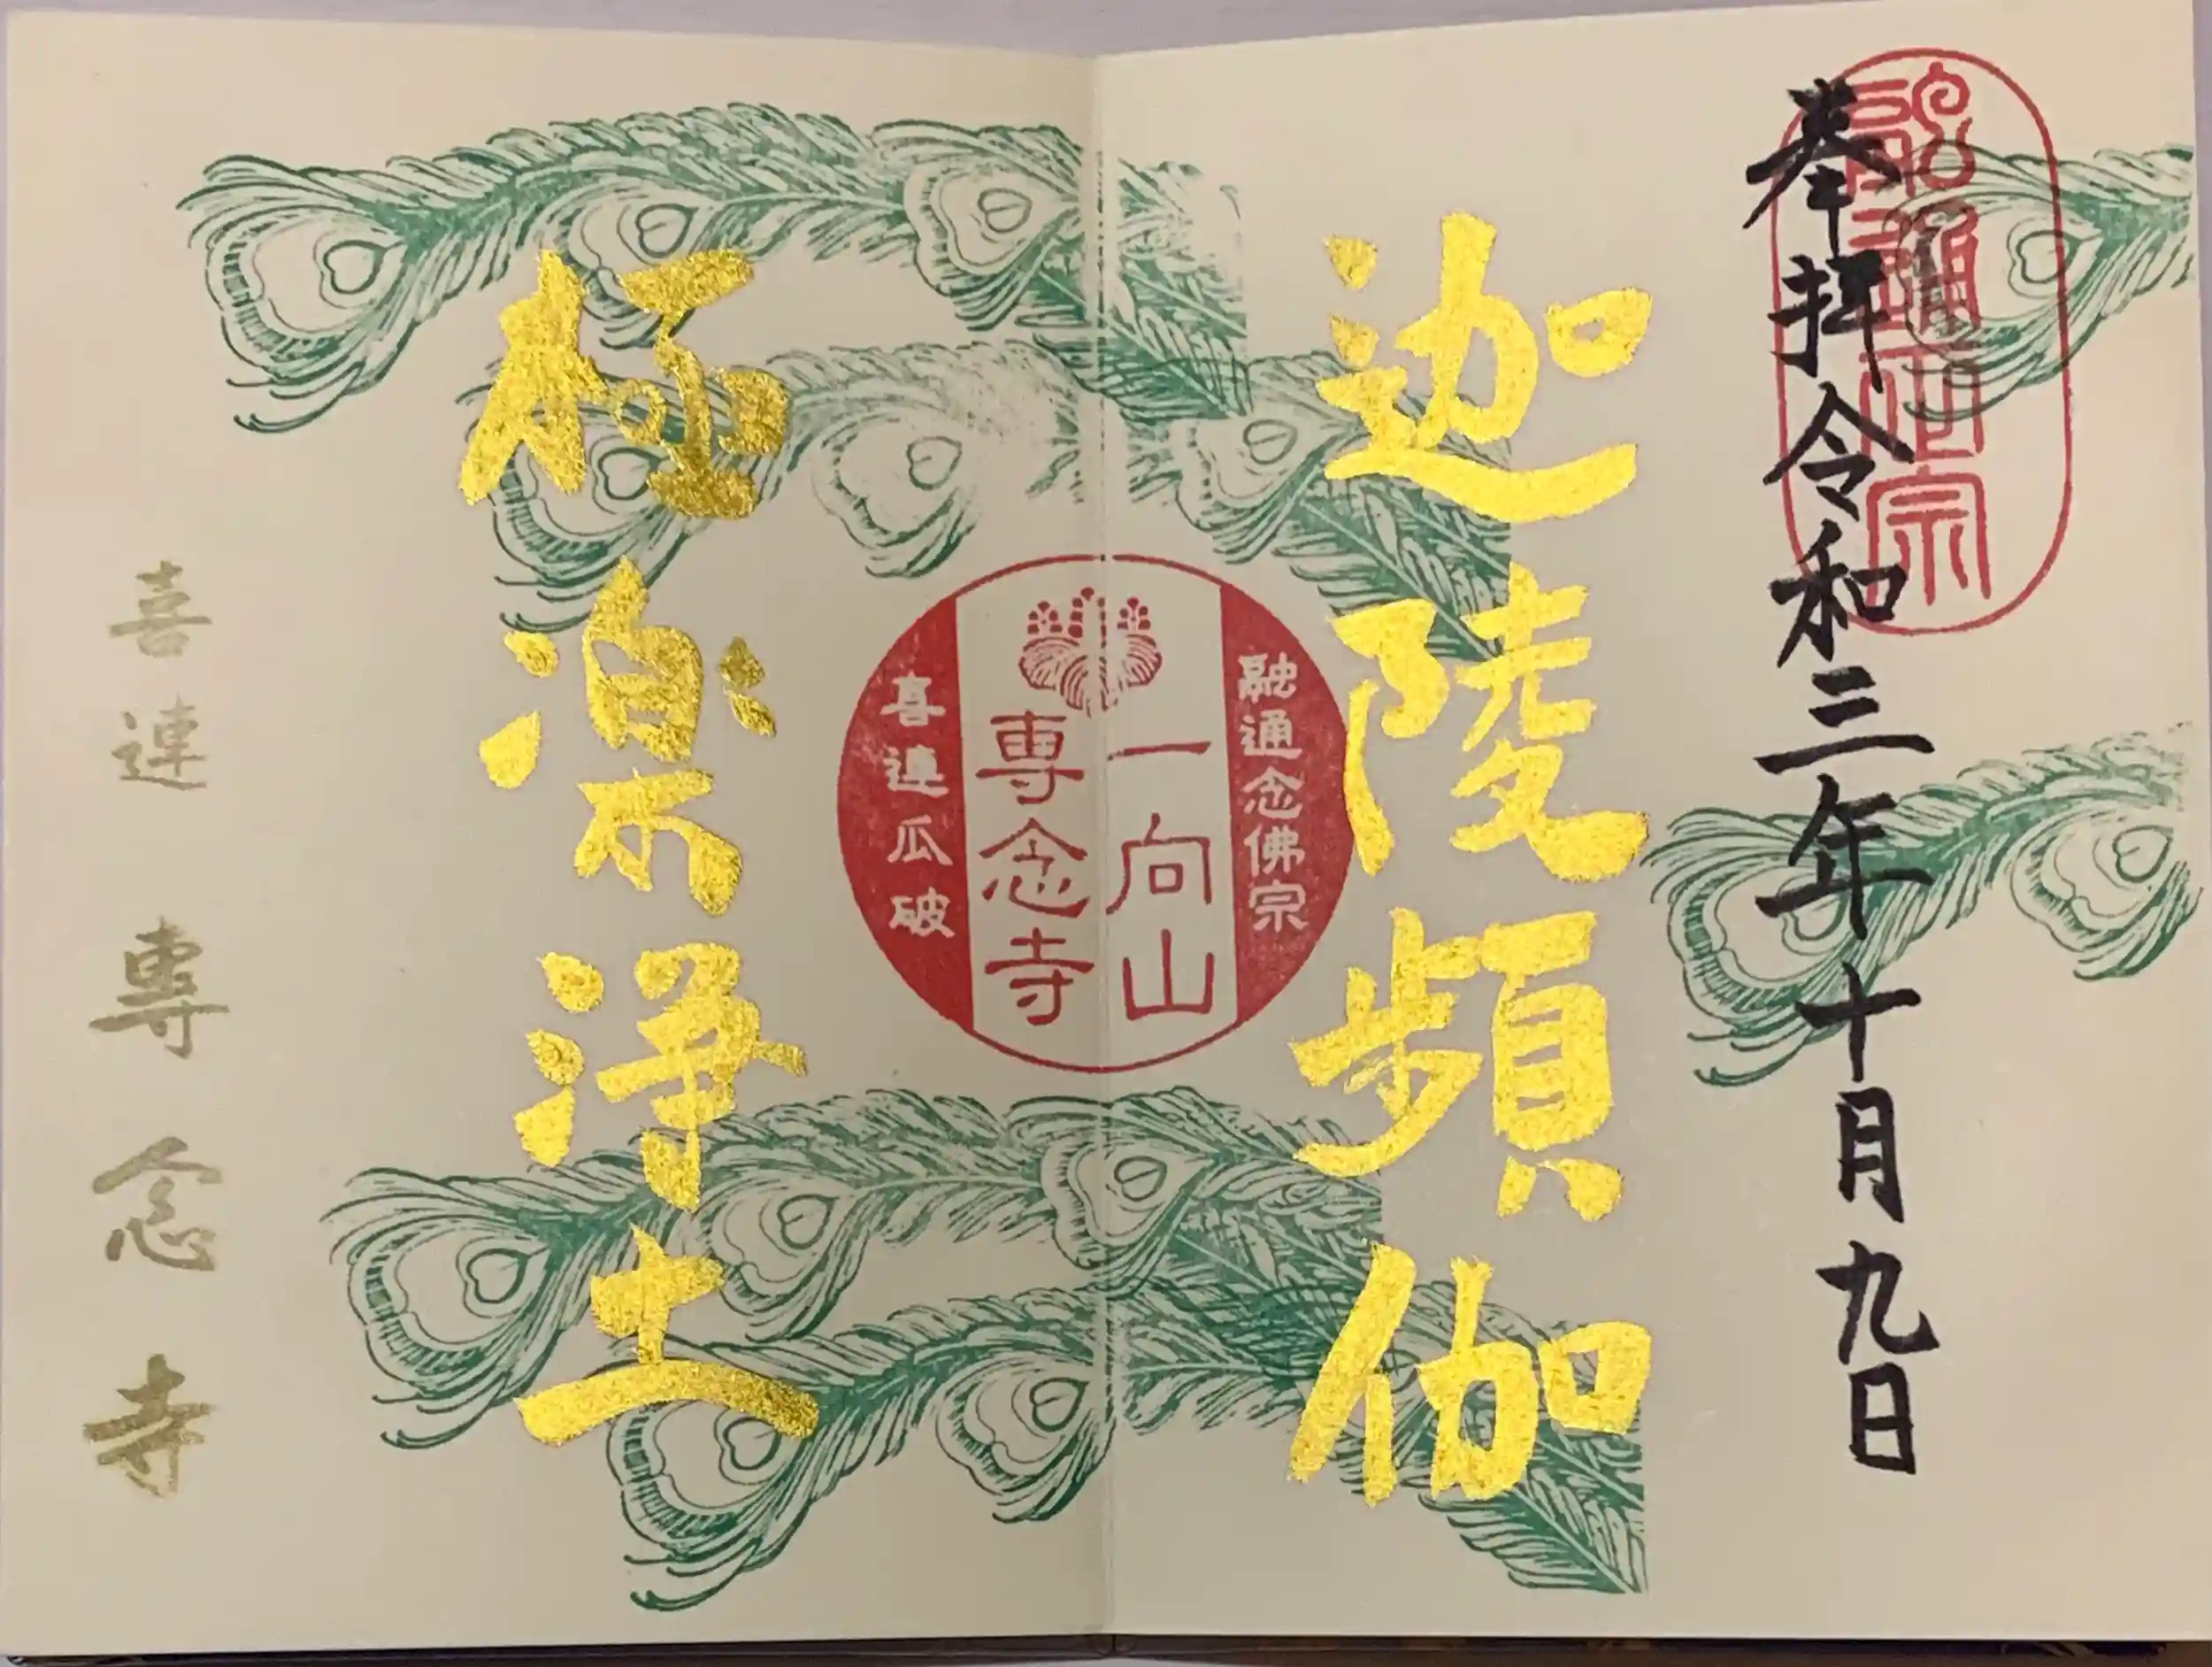 融通宗
奉拝 令和三年十月九日
迦陵頻伽
融通念佛宗
一向山
專念寺
喜連瓜破
極楽浄土
喜連 專念寺